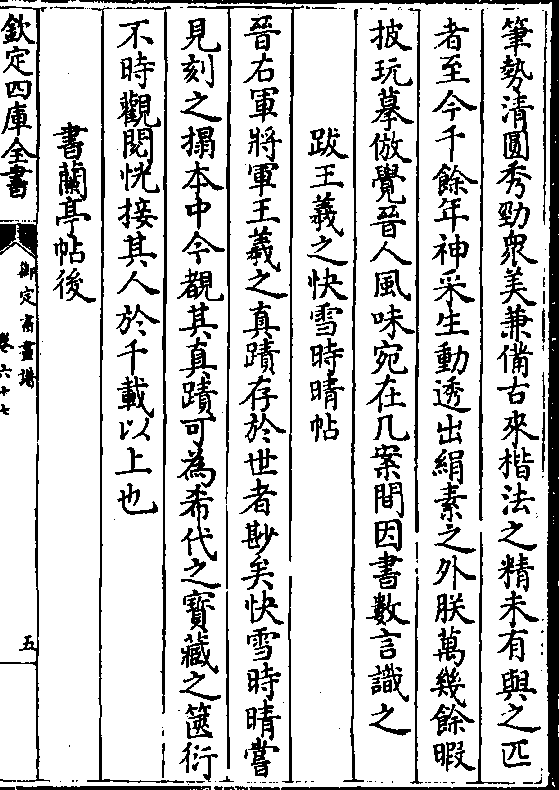 筆勢清圓秀勁衆美兼備古來楷法之精未有與之匹
者至今千餘年神采生動透出絹素之外朕萬幾餘暇
披玩摹倣覺晉人風味宛在几案間因書數言識之
跋王羲之快雪時晴帖
晉右軍將軍王羲之真蹟存於世者尠矣快雪時晴嘗
見刻之搨本中今覩其真蹟可為希代之寶藏之篋衍
不時觀閱恍接其人於千載以上也
書蘭亭帖後
欽定四庫全書
御定書畫譜
卷六十七
五